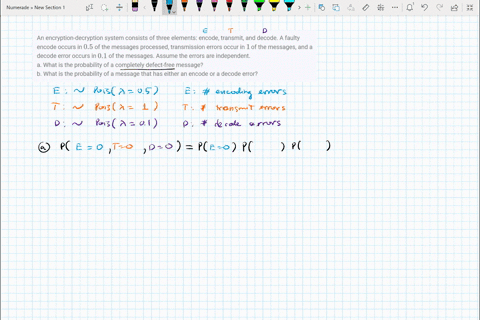 Numerade » New Section 1
E T D
An encryption-decryption system consists of three elements: encode, transmit, and decode. A faulty
encode occurs in 0.5 of the messages processed, transmission errors occur in 1 of the messages, and a
decode error occurs in 0.1 of the messages. Assume the errors are independent.
a. What is the probability of a completely defect-free message?
b. What is the probability of a message that has either an encode or a decode error?
E: ~ Pois(λ = 0.5) E: # encoding errors
T: ~ Pois(λ = 1) T: # transmit errors
D: ~ Pois(λ = 0.1) D: # decode errors
(a) P( E = 0 , T=0 , D=0 ) = P(E=0) P( ) P( )